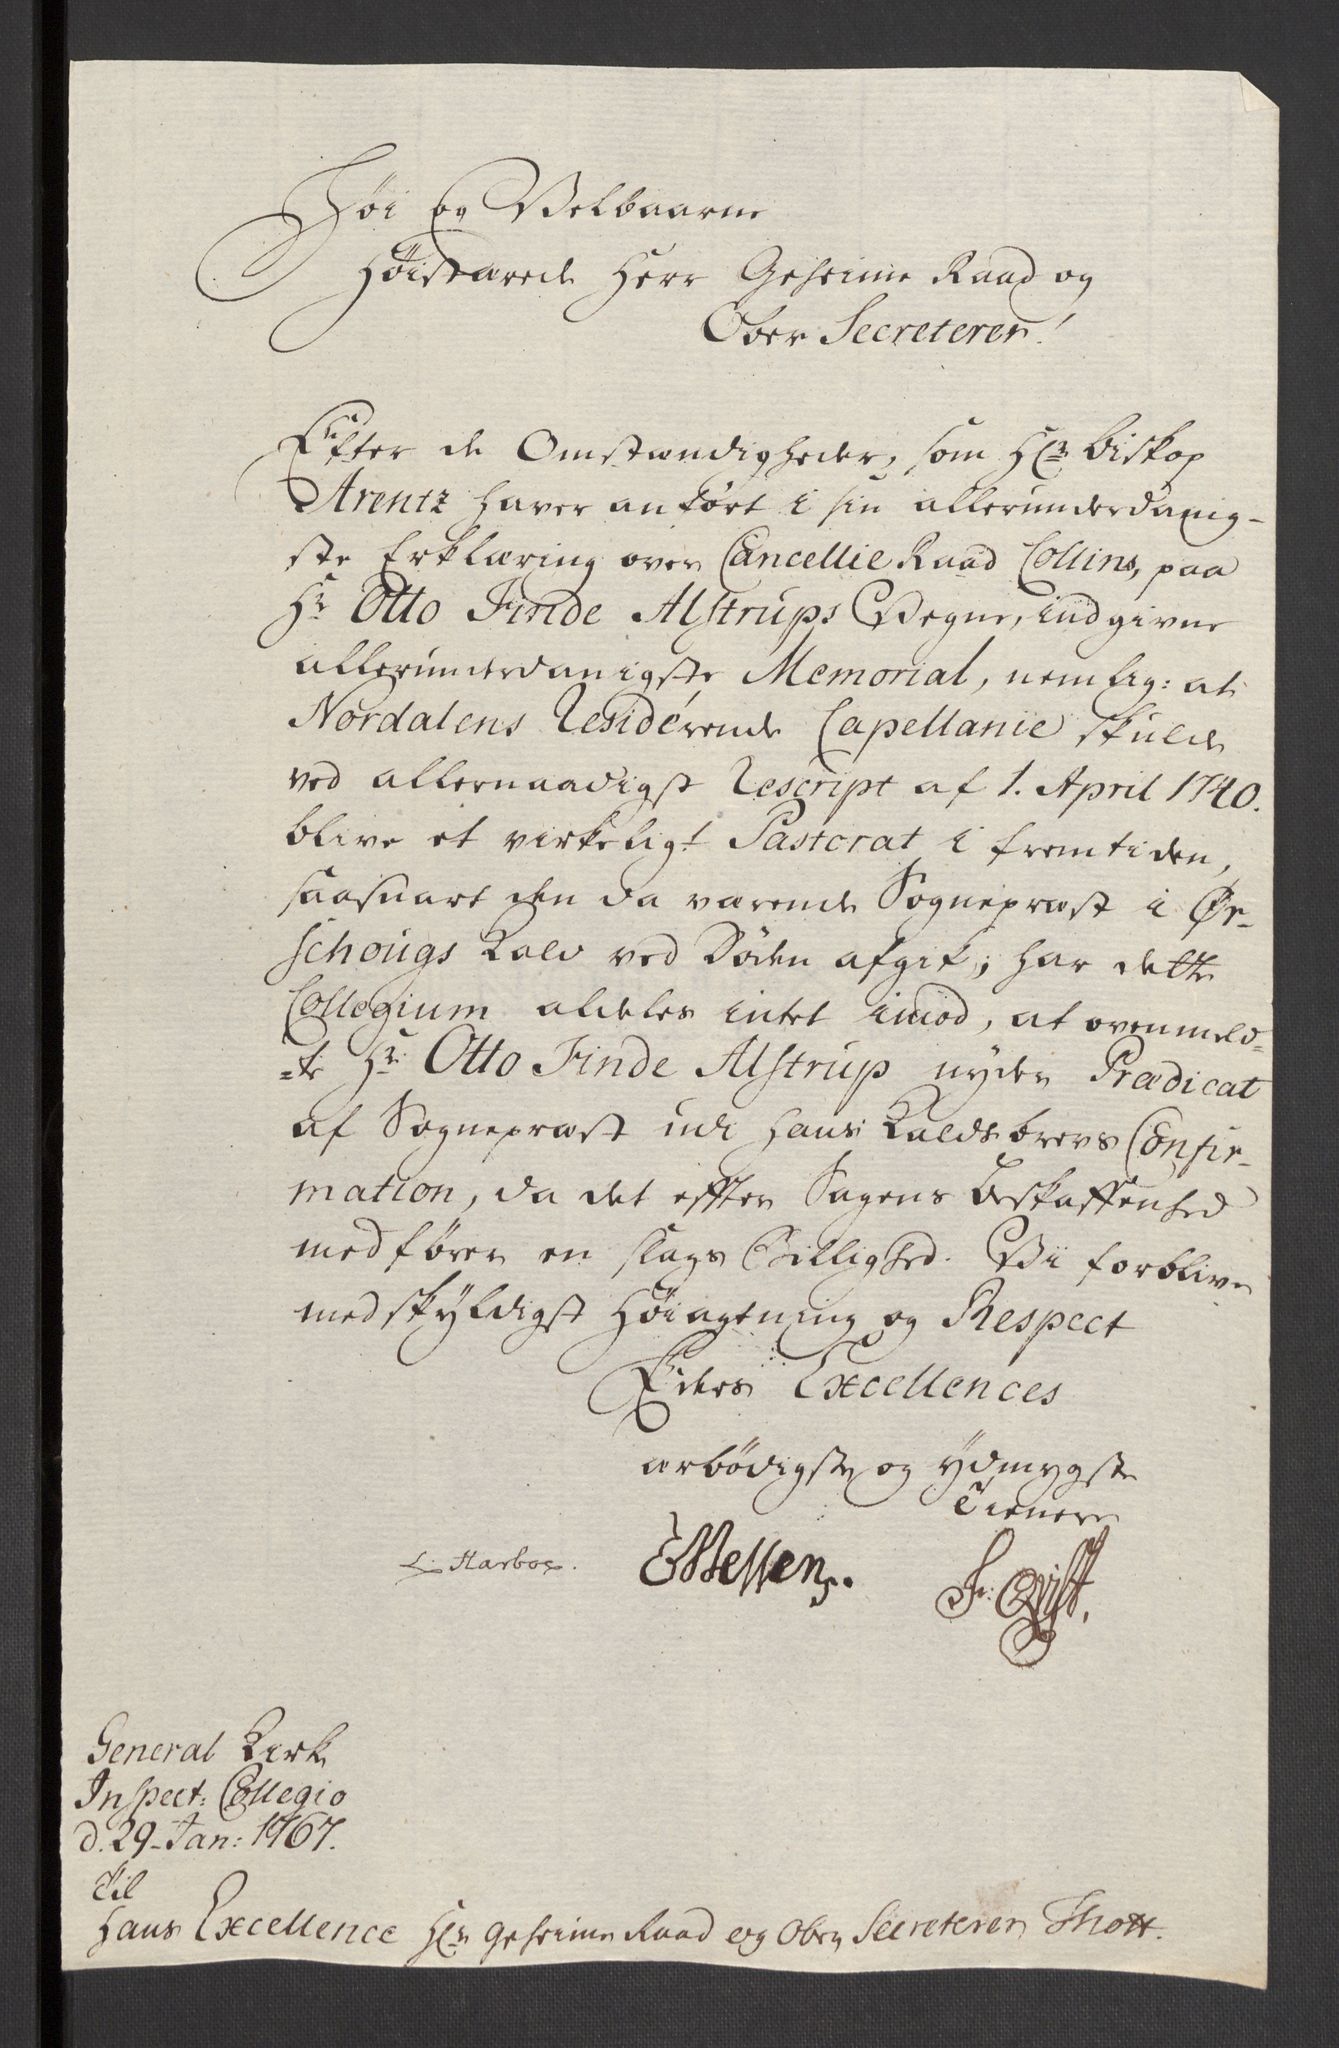 Høi og Velbaarne
Høistærede Herr Geheime Raad og
Ober Secreterer!
Efter de Omstændigheder, som Hr Biskop
Arentz haver anført i sin allerunderdanig-
ste Erklæring over Cancellie Raad Collins, paa
Hr Otto Finde Alstrups Vegne, indgivne
allerunderdanigste Memorial, nemlig: at
Nordalens Residerende Capellanie skulde
ved allernaadigst Rescript af 1. April 1740.
blive et virkeligt Pastorat i fremtiden,
saasnart den da værende Sognepræst i Ør-
schougs Kald ved Døden afgik; har dette
Collegium aldeles intet imod, at ovenmeld-
-te Hr Otto Finde Alstrup nyder Prædicat
af Sognepræst udi hans Kaldsbrevs Confir-
mation, da det effter Sagens Beskaffenhed
medfører en slags Billighed. Vi forblive
med skyldigst Høiagtning og Respect
Eders Excellences
ærbødigste og ydmygste
Tienere
L: Harboe. EWessen. Fr: Qvist.
General Kirke
Inspect: Collegio
d. 29. Jan: 1767.
Til
Hans Excellence Hr Geheime Raad og Ober Secreterer Thott.